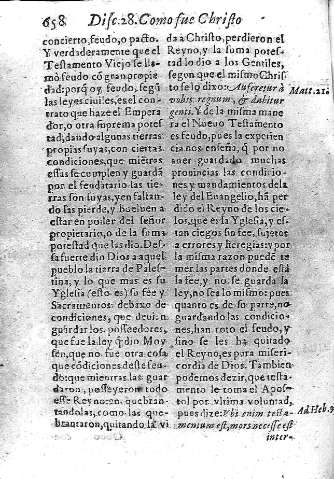 658 Disc.28. Como fue Christo
concierto, feudo, o pacto.
Y verdaderamente que el
Testamento Viejo se lla-
mò feudo cõ gran propie
dad: porq̃ oy feudo, segũ
las leyes ciuiles, es el con
trato que haze el Empera
dor, o otra suprema potes
tad, dando algunas tierras
propias suyas, con ciertas
condiciones, que miẽtras
essas se cumplen y guardã
por el feudatario las tie-
rras son suyas, y en faltan-
do las pierde, y bueluen a
estar en poder del señor
propietario, o de la suma
potestad que las dio. Des-
sa suerte dio Dios a aquel
pueblo la tierra de Pales-
tina, y lo que mas es su
Yglesia (esto es) su fee y
Sacramentos debaxo de
condiciones, que deuian
guardar los posseedores,
que fue la ley q̃ dio Moy
sen, que no fue otra cosa
que cõdiciones deste feu-
do: que mientras las guar
daron, posseyeron todo
esse Reyno: en quebran-
tandolas, como las que-
brantaron, quitando la vi
da a Christo, perdieron el
Reyno, y la suma potes-
tad lo dio a los Gentiles,
segun que el mismo Chris
to selo dixo: Auferetur à
vobis regnum, & dabitur
genti. Y de la misma mane
ra el Nuevo Testamento
es feudo, pues la experien
cia nos enseña, q̃ por no
auer guardado muchas
prouincias las condicio-
nes y mandamientos de la
ley del Euangelio, hã per
dido el Reyno de los cie-
los, que es la Yglesia, y es-
tan ciegos sin fee, sujetos
a errores y heregias: y por
la misma razon puede te
mer las partes donde està
la fee, y no se guarda la
ley, no sea lo mismo: pues
quanto es de su parte, no
guardando las condicio-
nes, han roto el feudo, y
sino se les ha quitado
el Reyno, es pura miseri-
cordia de Dios. Tambien
podemos dezir, que testa-
mento le toma el Apos-
tol por vltima voluntad,
pues dize: Vbi enim testa-
mentum est, mors necesse est
inter-
Matt. 21.
Ad Heb. 9